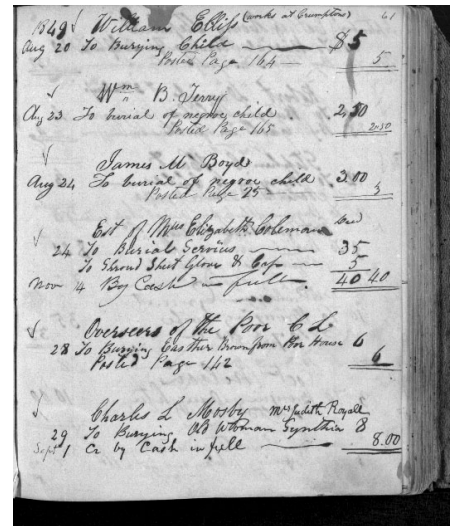 1849 William Elliss (works at Crumptons) 61
Aug 20 To Burying Child $5
Posted Page 164 — 5
Wm B. Terry
Aug 23 To burial of negroe child 2.50
Posted Page 165 2.50
James M Boyd
Aug 24 To burial of negroe child 3.00
Posted Page 25 3
Est of Mrs Elizabeth Coleman Decd
24 To Burial Services 35
To Shroud Sheet Glove & Cap 5
Nov 14 By Cash in full 40 40
Overseers of the Poor C L
28 To Burying Easther Brown from Poor House 6
Posted Page 142 6
Charles L Mosby Mrs Judith Royall
29 To Burying Old Woman Synthia 8
Sept 1 Cr by Cash in full 8.00